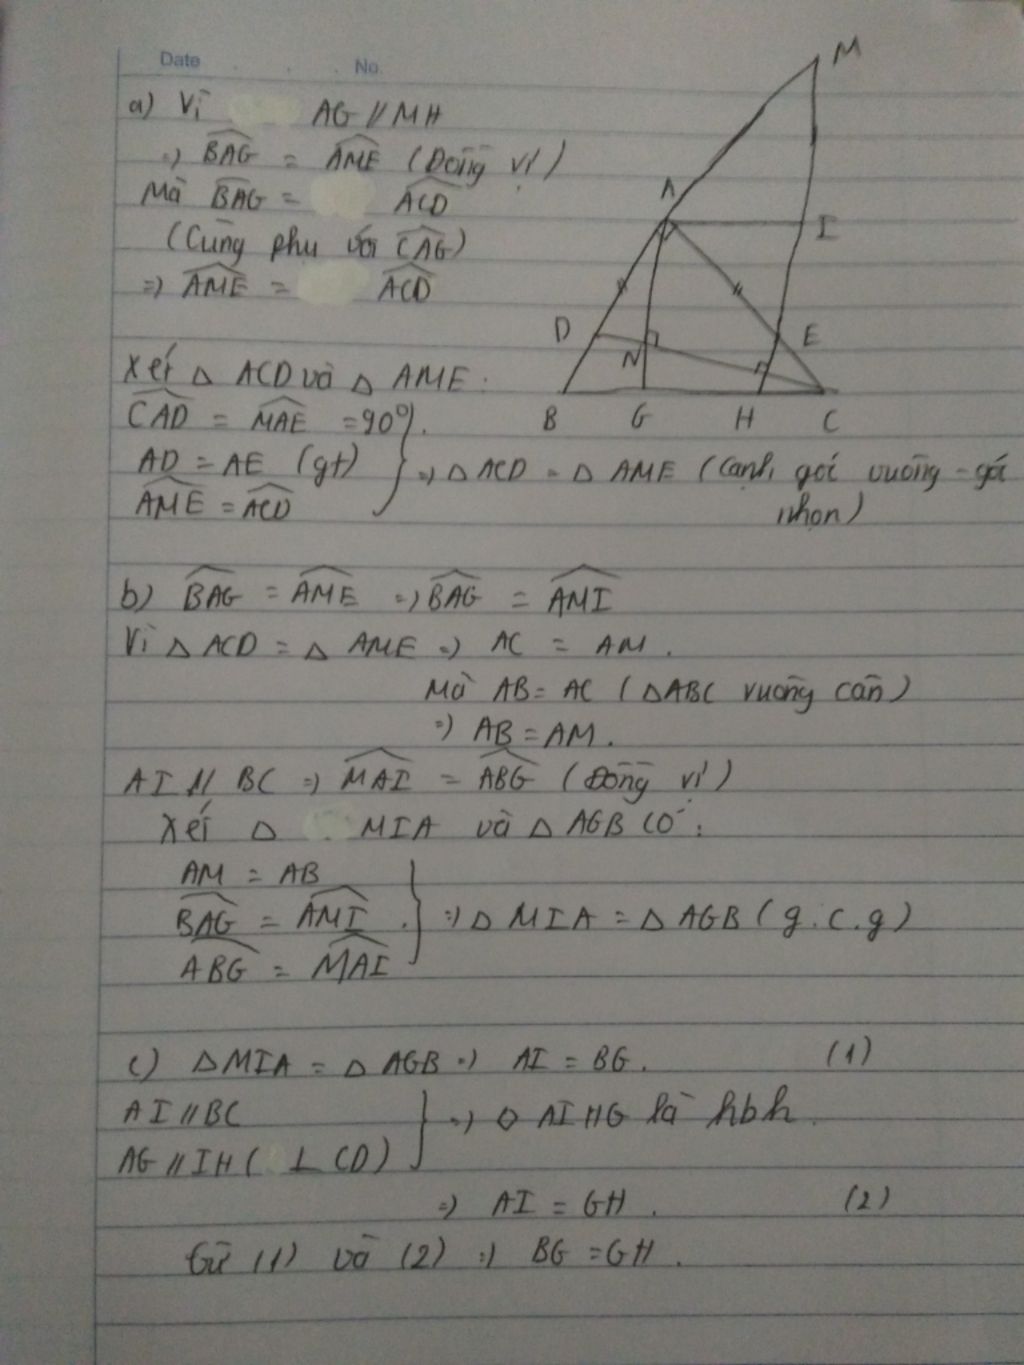 Date No.
M
a) Vì AG // MH
=> BAG = AME (Đồng vị)
Mà BAG = ACD
(Cùng phụ với CAG)
=> AME = ACD
A
I
D
E
N
B G H C
Xét Δ ACD và Δ AME:
CAD = MAE = 90°.
AD = AE (gt) } => Δ ACD = Δ AME (cạnh góc vuông - góc
AME = ACD nhọn)
b) BAG = AME => BAG = AMI
Vì Δ ACD = Δ AME => AC = AM.
Mà AB = AC (ΔABC vuông cân)
=> AB = AM.
AI // BC => MAI = ABG (Đồng vị)
Xét Δ MIA và Δ AGB có:
AM = AB
BAG = AMI } => Δ MIA = Δ AGB (g.c.g)
ABG = MAI
c) ΔMIA = Δ AGB => AI = BG. (1)
AI // BC } => ◇ AIHG là hbh.
AG // IH ( ⊥ CD)
=> AI = GH. (2)
Từ (1) và (2) => BG = GH.